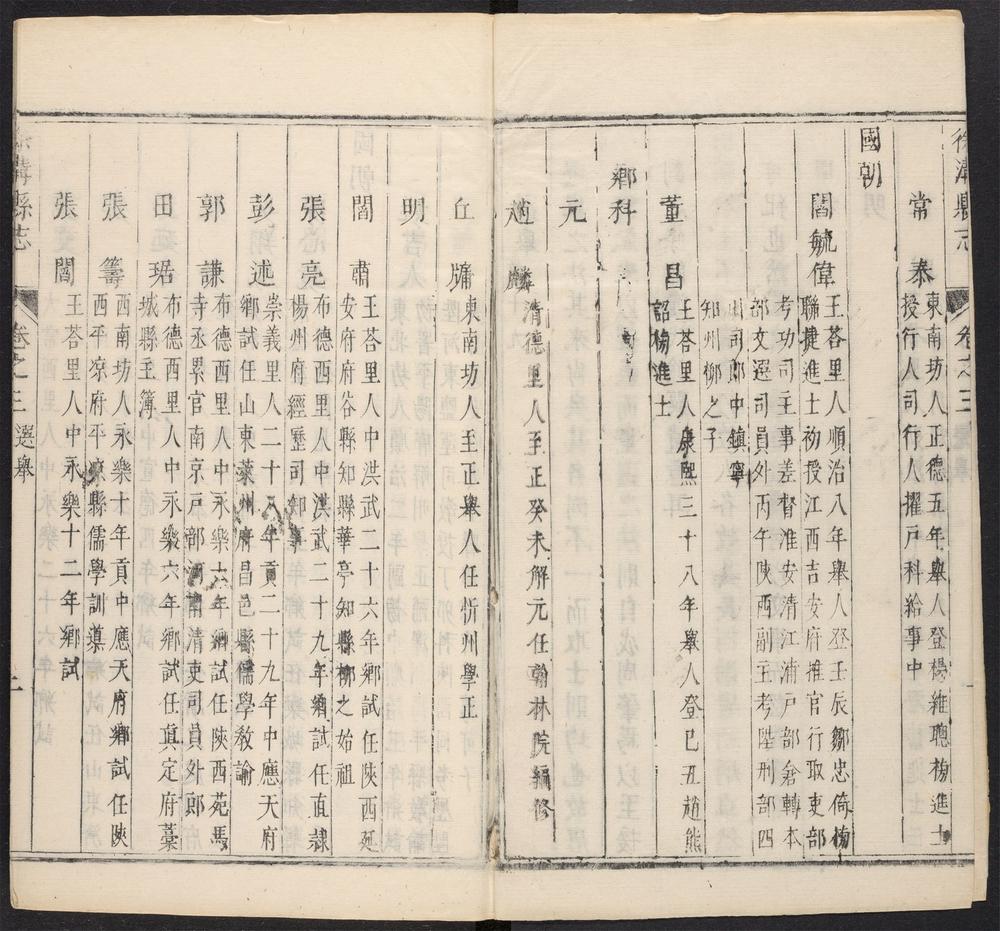 徐溝縣志 卷之三
常泰 東南坊人正德五年舉人登楊維聰榜進士
授行人司行人擢戶科給事中
國朝
閻毓偉 王荅里人順治八年舉人登壬辰鄒忠倚榜
聯捷進士初授江西吉安府推官行取吏部
考功司主事差督淮安清江浦戶部倉轉本
部文選司員外丙午年陝西副主考陞刑部四
川司郎中鎮寧
知州柳之子
董昌 王荅里人康熙三十八年舉人登己丑趙熊
詔榜進士
鄉科
元
趙麟 清德里人至正癸未解元任翰林院編修
丘牗 東南坊人至正舉人任忻州學正
明
閻肅 王荅里人中洪武二十六年鄉試任陝西延
安府府谷縣知縣華亭知縣柳之始祖
張亮 布德西里人中洪武二十九年鄉試任直隸
楊州府經歷司知事
彭述 崇義里人二十八年貢二十九年中應天府
鄉試任山東萊州府昌邑縣儒學敎諭
郭謙 布德西里人中永樂六年鄉試任陝西苑馬
寺丞累官南京戶部河南清吏司員外郎
田琚 布德西里人中永樂六年鄉試任眞定府藁
城縣主簿
張籌 西南坊人永樂十年貢中應天府鄉試任陝
西平凉府平凉縣儒學訓導
張閻 王荅里人中永樂十二年鄉試
徐溝縣志 卷之三 選舉 上